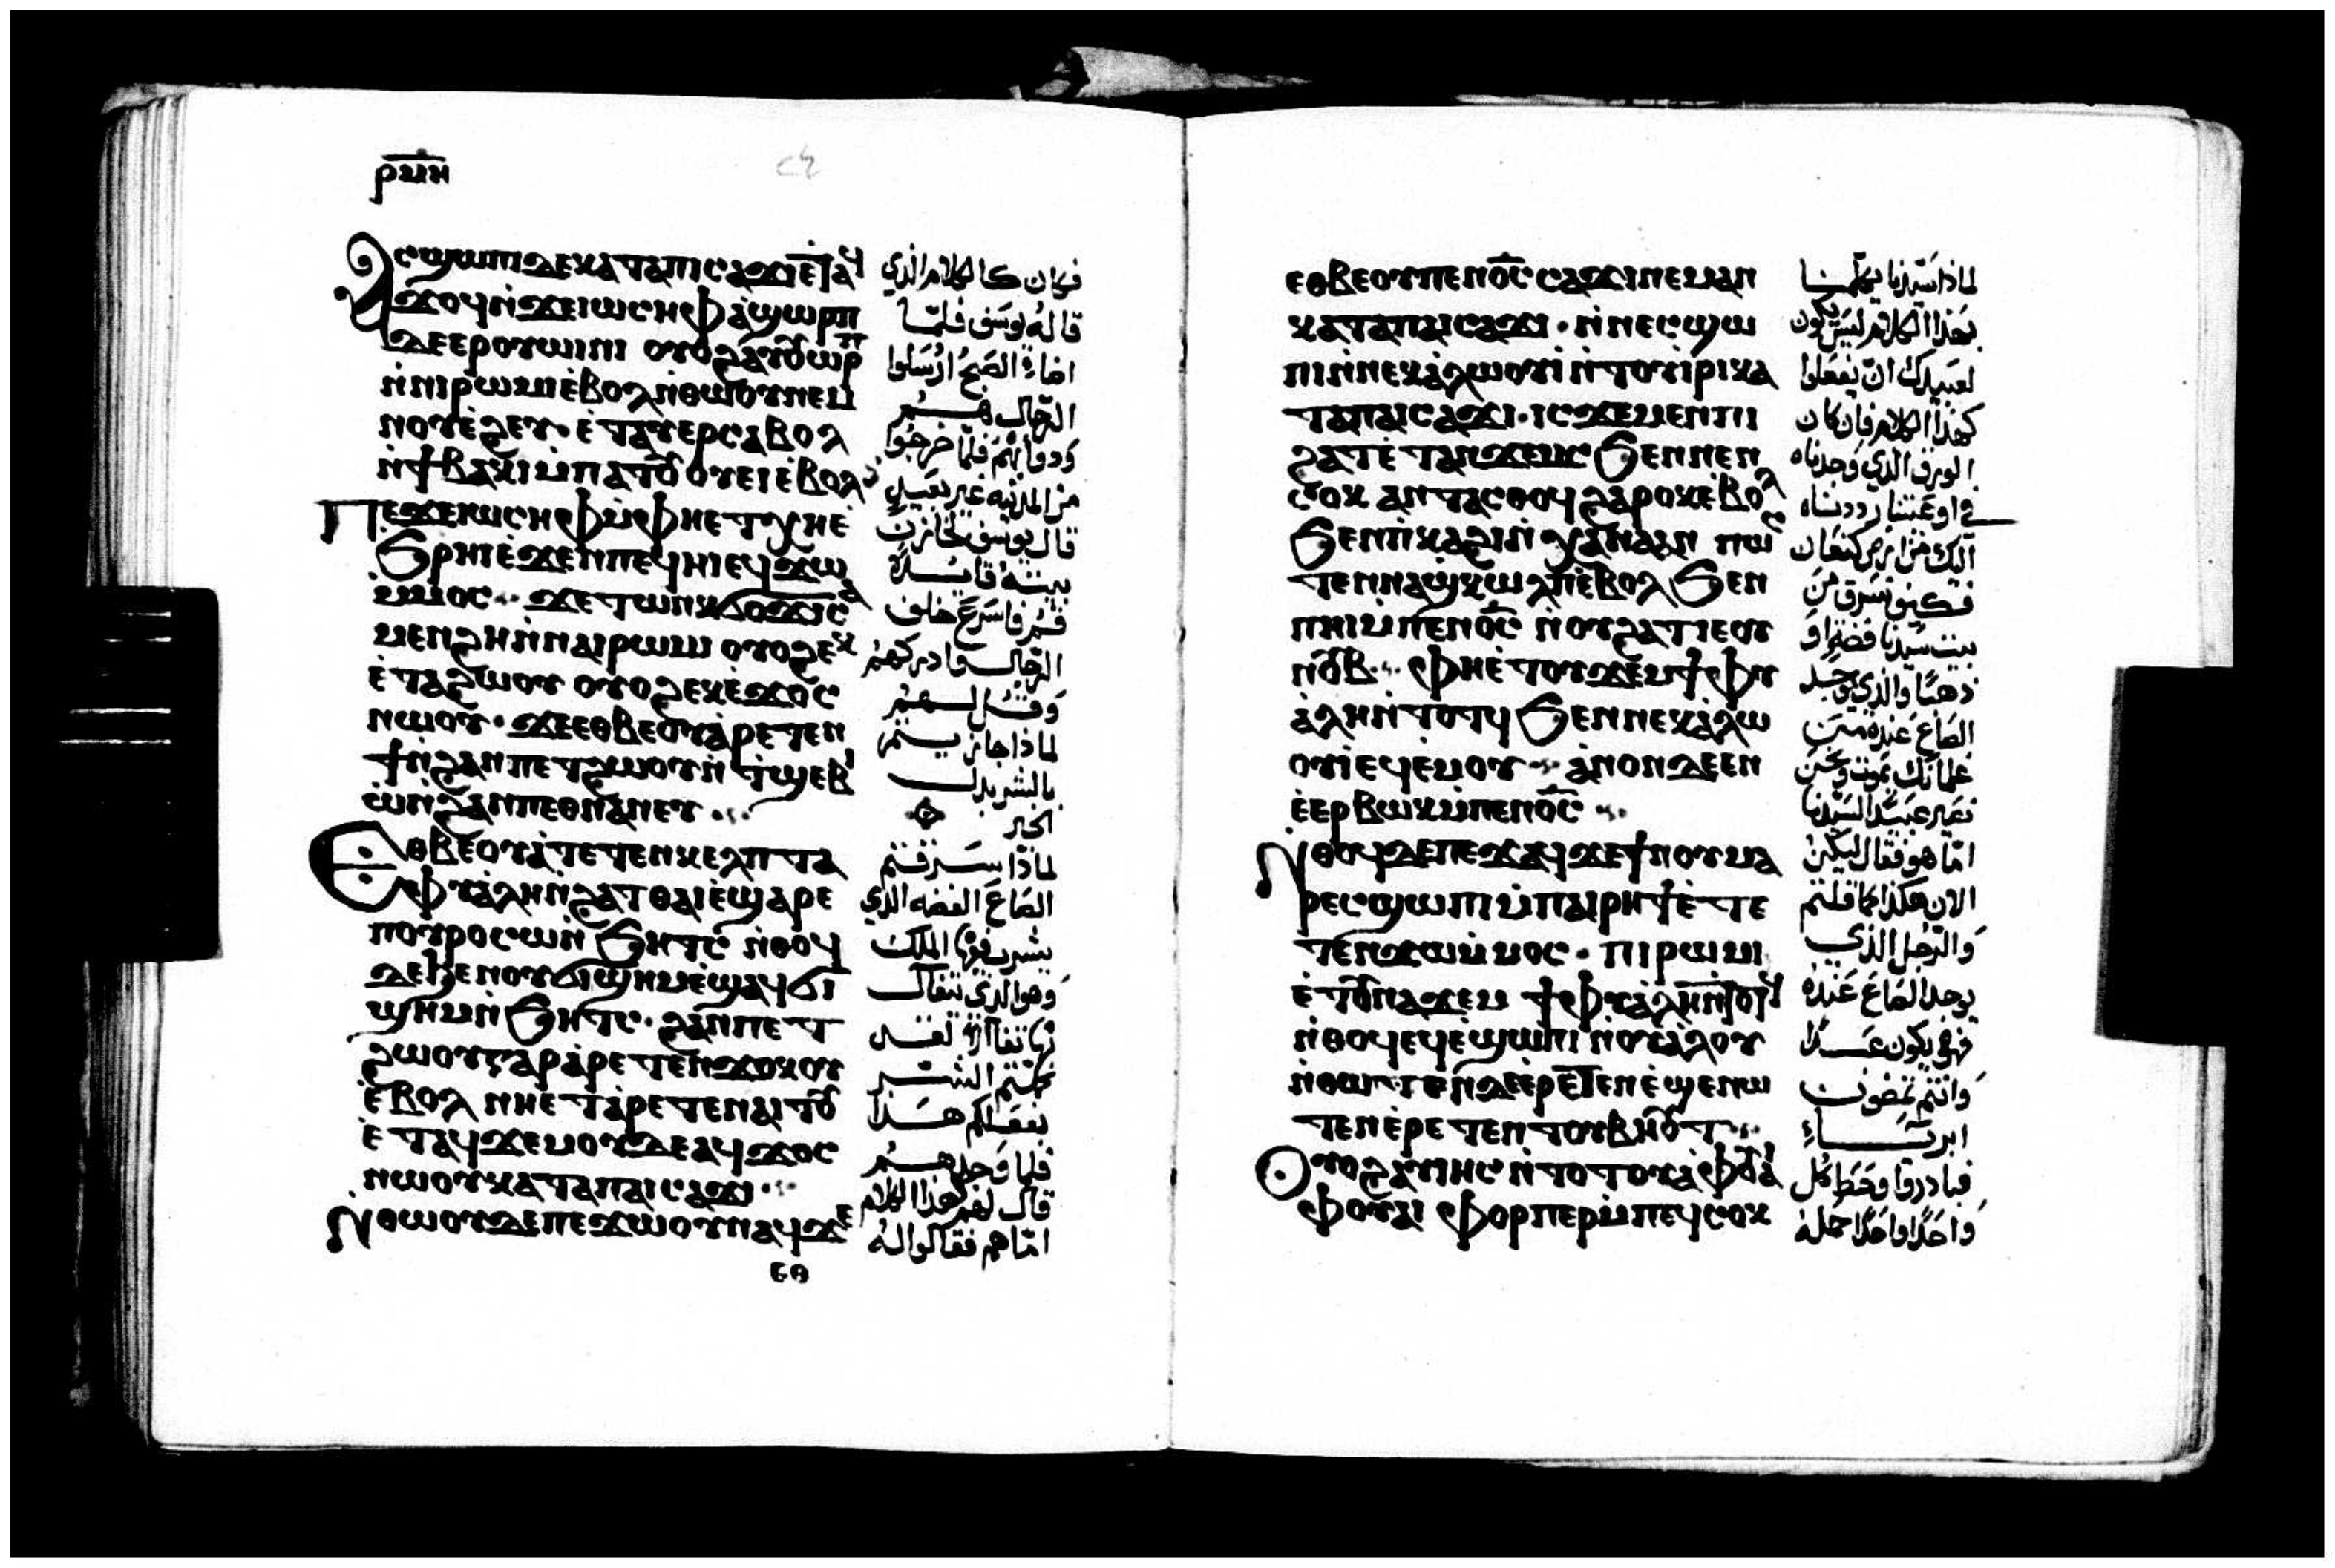 ⲣⲙⲏ
Ⲁⲥϣⲱⲡⲓ ⲇⲉ ⲕⲁⲧⲁ ⲡⲓⲥⲁϫⲓ ⲉⲧⲁϥ
ϫⲟϥ ⲛ̀ϫⲉ ⲓⲱⲥⲏⲫ ⲁ̀ϣⲱⲣⲡ
ⲇⲉ ⲉⲣⲟⲩⲱⲓⲛⲓ ⲟⲩⲟϩ ⲁⲩⲟⲩⲱⲣⲡ
ⲛ̀ⲛⲓⲣⲱⲙⲓ ⲉ̀ⲃⲟⲗ ⲛ̀ⲑⲱⲟⲩ ⲛⲉⲙ
ⲛⲟⲩⲉ̀ⲉⲩ· ⲉ̀ⲧⲁⲩⲉⲣⲥⲁⲃⲟⲗ
ⲛ̀ϯⲃⲁⲕⲓ ⲙ̀ⲡⲁⲧⲟⲩⲟⲩⲉⲓ ⲉ̀ⲃⲟⲗ
ⲡⲉϫⲉ ⲓⲱⲥⲏⲫ ⲙ̀ⲫⲏⲉⲧⲭⲏ ⲉ̀
ϧⲣⲏⲓ ⲉ̀ϫⲉⲛ ⲡⲉϥⲏⲓ ⲉϥϫⲱ
ⲙ̀ⲙⲟⲥ· ϫⲉ ⲧⲱⲛⲕ ϭⲟϫⲓ ⲥⲁ
ⲙⲉⲛϩⲏ ⲛ̀ⲛⲁⲓⲣⲱⲙⲓ ⲟⲩⲟϩ ⲉⲕ
ⲉ̀ⲧⲁϩⲱⲟⲩ ⲟⲩⲟϩ ⲉⲕⲉ̀ϫⲟⲥ
ⲛⲱⲟⲩ· ϫⲉ ⲉⲑⲃⲉⲟⲩ ⲁ̀ⲣⲉⲧⲉⲛ
ϯ ⲛ̀ϩⲁⲛⲡⲉⲧϩⲱⲟⲩ ⲛ̀ⲧ̀ϣⲉⲃⲓ
ⲱ̀ ⲛ̀ϩⲁⲛⲡⲉⲑⲛⲁⲛⲉⲩ
Ⲉⲑⲃⲉⲟⲩ ⲁ̀ⲧⲉⲧⲉⲛⲕⲉⲗⲡ ⲧⲁ
ⲫⲩⲁ̀ⲗⲏ ⲛ̀ϩⲁⲧ ⲑⲁⲓ ⲉ̀ϣⲁⲣⲉ
ⲡⲟⲩⲣⲟ ⲥⲱ ⲛ̀ϧⲏⲧⲥ ⲛ̀ⲑⲟϥ
ⲇⲉ ϧⲉⲛ ⲟⲩϭⲓϣⲏⲙ ⲉ̀ϣⲁϥϭⲓ
ϣⲏⲙ ⲛ̀ϧⲏⲧⲥ· ϩⲁⲛⲡⲉⲧ
ϩⲱⲟⲩ ⲅⲁⲣ ⲁ̀ⲣⲉⲧⲉⲛϫⲟⲕⲟⲩ
ⲉ̀ⲃⲟⲗ ⲛⲏⲉⲧⲁ̀ⲣⲉⲧⲉⲛⲁⲓⲧⲟⲩ
ⲉ̀ⲧⲁϥϫⲉⲙⲟⲩ ⲇⲉ ⲁϥϫⲟⲥ
ⲛⲱⲟⲩ ⲕⲁⲧⲁ ⲡⲁⲓⲥⲁϫⲓ
Ⲛⲑⲱⲟⲩ ⲇⲉ ⲡⲉϫⲱⲟⲩ ⲛⲁϥ ϫⲉ
ⲉⲑ
فكان كالكلام الذي
قاله يوسف فلما
اضاء الصبح ارسلوا
الرجال هم
ودوابهم فلما خرجوا
من المدينه غير بعيد
قال يوسف لخازن
بيته قايلا
قم فاسرع خلف
الرجال وادركهم
وقل لهم
لماذا جازيتم
بالشر بدل
الخير
لماذا سرقتم
الصاع الفضه الذي
يشرب فيها الملك
وهو الذي يتفال
بها تفالا لقد
كملتم الشر
بفعلكم هذا
فلما وجدهم
قال لهم كهذا الكلام
اما هم فقالوا له
ⲉⲑⲃⲉⲟⲩ ⲡⲉⲛⲟ̅ⲥ̅ ⲥⲁϫⲓ ⲛⲉⲙⲁⲛ
ⲕⲁⲧⲁ ⲡⲁⲓⲥⲁϫⲓ· ⲛ̀ⲛⲉⲥϣⲱ
ⲡⲓ ⲛ̀ⲛⲉⲕⲁ̀ⲗⲱⲟⲩⲓ̀ ⲛ̀ⲧⲟⲩⲓ̀ⲣⲓ ⲕⲁ
ⲧⲁ ⲡⲁⲓⲥⲁϫⲓ· ⲓⲥϫⲉ ⲙⲉⲛ ⲡⲓ
ϩⲁⲧ ⲉ̀ⲧⲁⲛϫⲉⲙϥ ϧⲉⲛ ⲛⲉⲛ
ⲥⲟⲕ ⲁⲛⲧⲁⲥⲑⲟϥ ϩⲁⲣⲟⲕ ⲉ̀ⲃⲟⲗ
ϧⲉⲛ ⲡ̀ⲕⲁϩⲓ ⲛ̀ⲭⲁⲛⲁⲁⲛ ⲡⲱⲥ
ⲧⲉⲛⲛⲁϣ̀ⲕⲱⲗⲡ ⲉ̀ⲃⲟⲗ ϧⲉⲛ
ⲡⲏⲓ ⲙ̀ⲡⲉⲛⲟ̅ⲥ̅ ⲛ̀ⲟⲩϩⲁⲧ ⲓⲉ ⲟⲩ
ⲛⲟⲩⲃ· ⲫⲏⲉ̀ⲧⲟⲩϫⲉⲙ ϯⲫⲩ
ⲁ̀ⲗⲏ ⲛ̀ⲧⲟⲧϥ ϧⲉⲛ ⲛⲉⲕⲁ̀ⲗⲱ
ⲟⲩⲓ̀ ⲉϥⲉ̀ⲙⲟⲩ· ⲁ̀ⲛⲟⲛ ⲇⲉ ⲉⲛ
ⲉ̀ⲉⲣⲃⲱⲕ ⲙ̀ⲡⲉⲛⲟ̅ⲥ̅
Ⲛⲑⲟϥ ⲇⲉ ⲡⲉϫⲁϥ ϫⲉ ϯⲛⲟⲩ ⲙⲁ
ⲣⲉⲥϣⲱⲡⲓ ⲙ̀ⲡⲁⲓⲣⲏϯ ⲉ̀ⲧⲉ
ⲧⲉⲛϫⲱ ⲙ̀ⲙⲟⲥ· ⲡⲓⲣⲱⲙⲓ
ⲉ̀ⲧⲟⲩⲛⲁϫⲉⲙ ϯⲫⲩⲁ̀ⲗⲏ ⲛ̀ⲧⲟⲧϥ
ⲛ̀ⲑⲟϥ ⲉϥⲉ̀ϣⲱⲡⲓ ⲛ̀ⲟⲩⲁ̀ⲗⲟⲩ
ⲛ̀ⲑⲱⲧⲉⲛ ⲇⲉ ⲉⲣⲉⲧⲉⲛⲉ̀ϣⲉⲛⲱ
ⲧⲉⲛ ⲉ̀ⲣⲉⲧⲉⲛⲧⲟⲩⲃⲏⲟⲩⲧ
Ⲟⲩⲟϩ ⲁⲩⲓⲏⲥ ⲛ̀ⲧⲟⲧⲟⲩ ⲁ̀ ⲫⲟⲩⲁⲓ
ⲫⲟⲩⲁⲓ ⲫⲟⲣⲡⲉⲣ ⲙ̀ⲡⲉϥⲥⲟⲕ
لماذا سيدنا يكلمنا
بهذا الكلام ليس يكون
لعبيدك ان يفعلوا
كهذا الكلام فان كان
الورق الذي وجدناه
في اوعيتنا رددناه
اليك من ارض كنعان
فكيف نسرق من
بيت سيدنا فضه او
ذهبا والذي يوجد
الصاع عنده من
غلمانك يموت ونحن
نصير عبيدا لسيدنا
اما هو فقال ليكن
الان هكذا كما قلتم
والرجل الذي
يوجد الصاع عنده
فهو يكون عبدا
وانتم تمضون
ابرياء
فبادروا وحط كل
واحد واحد حمله